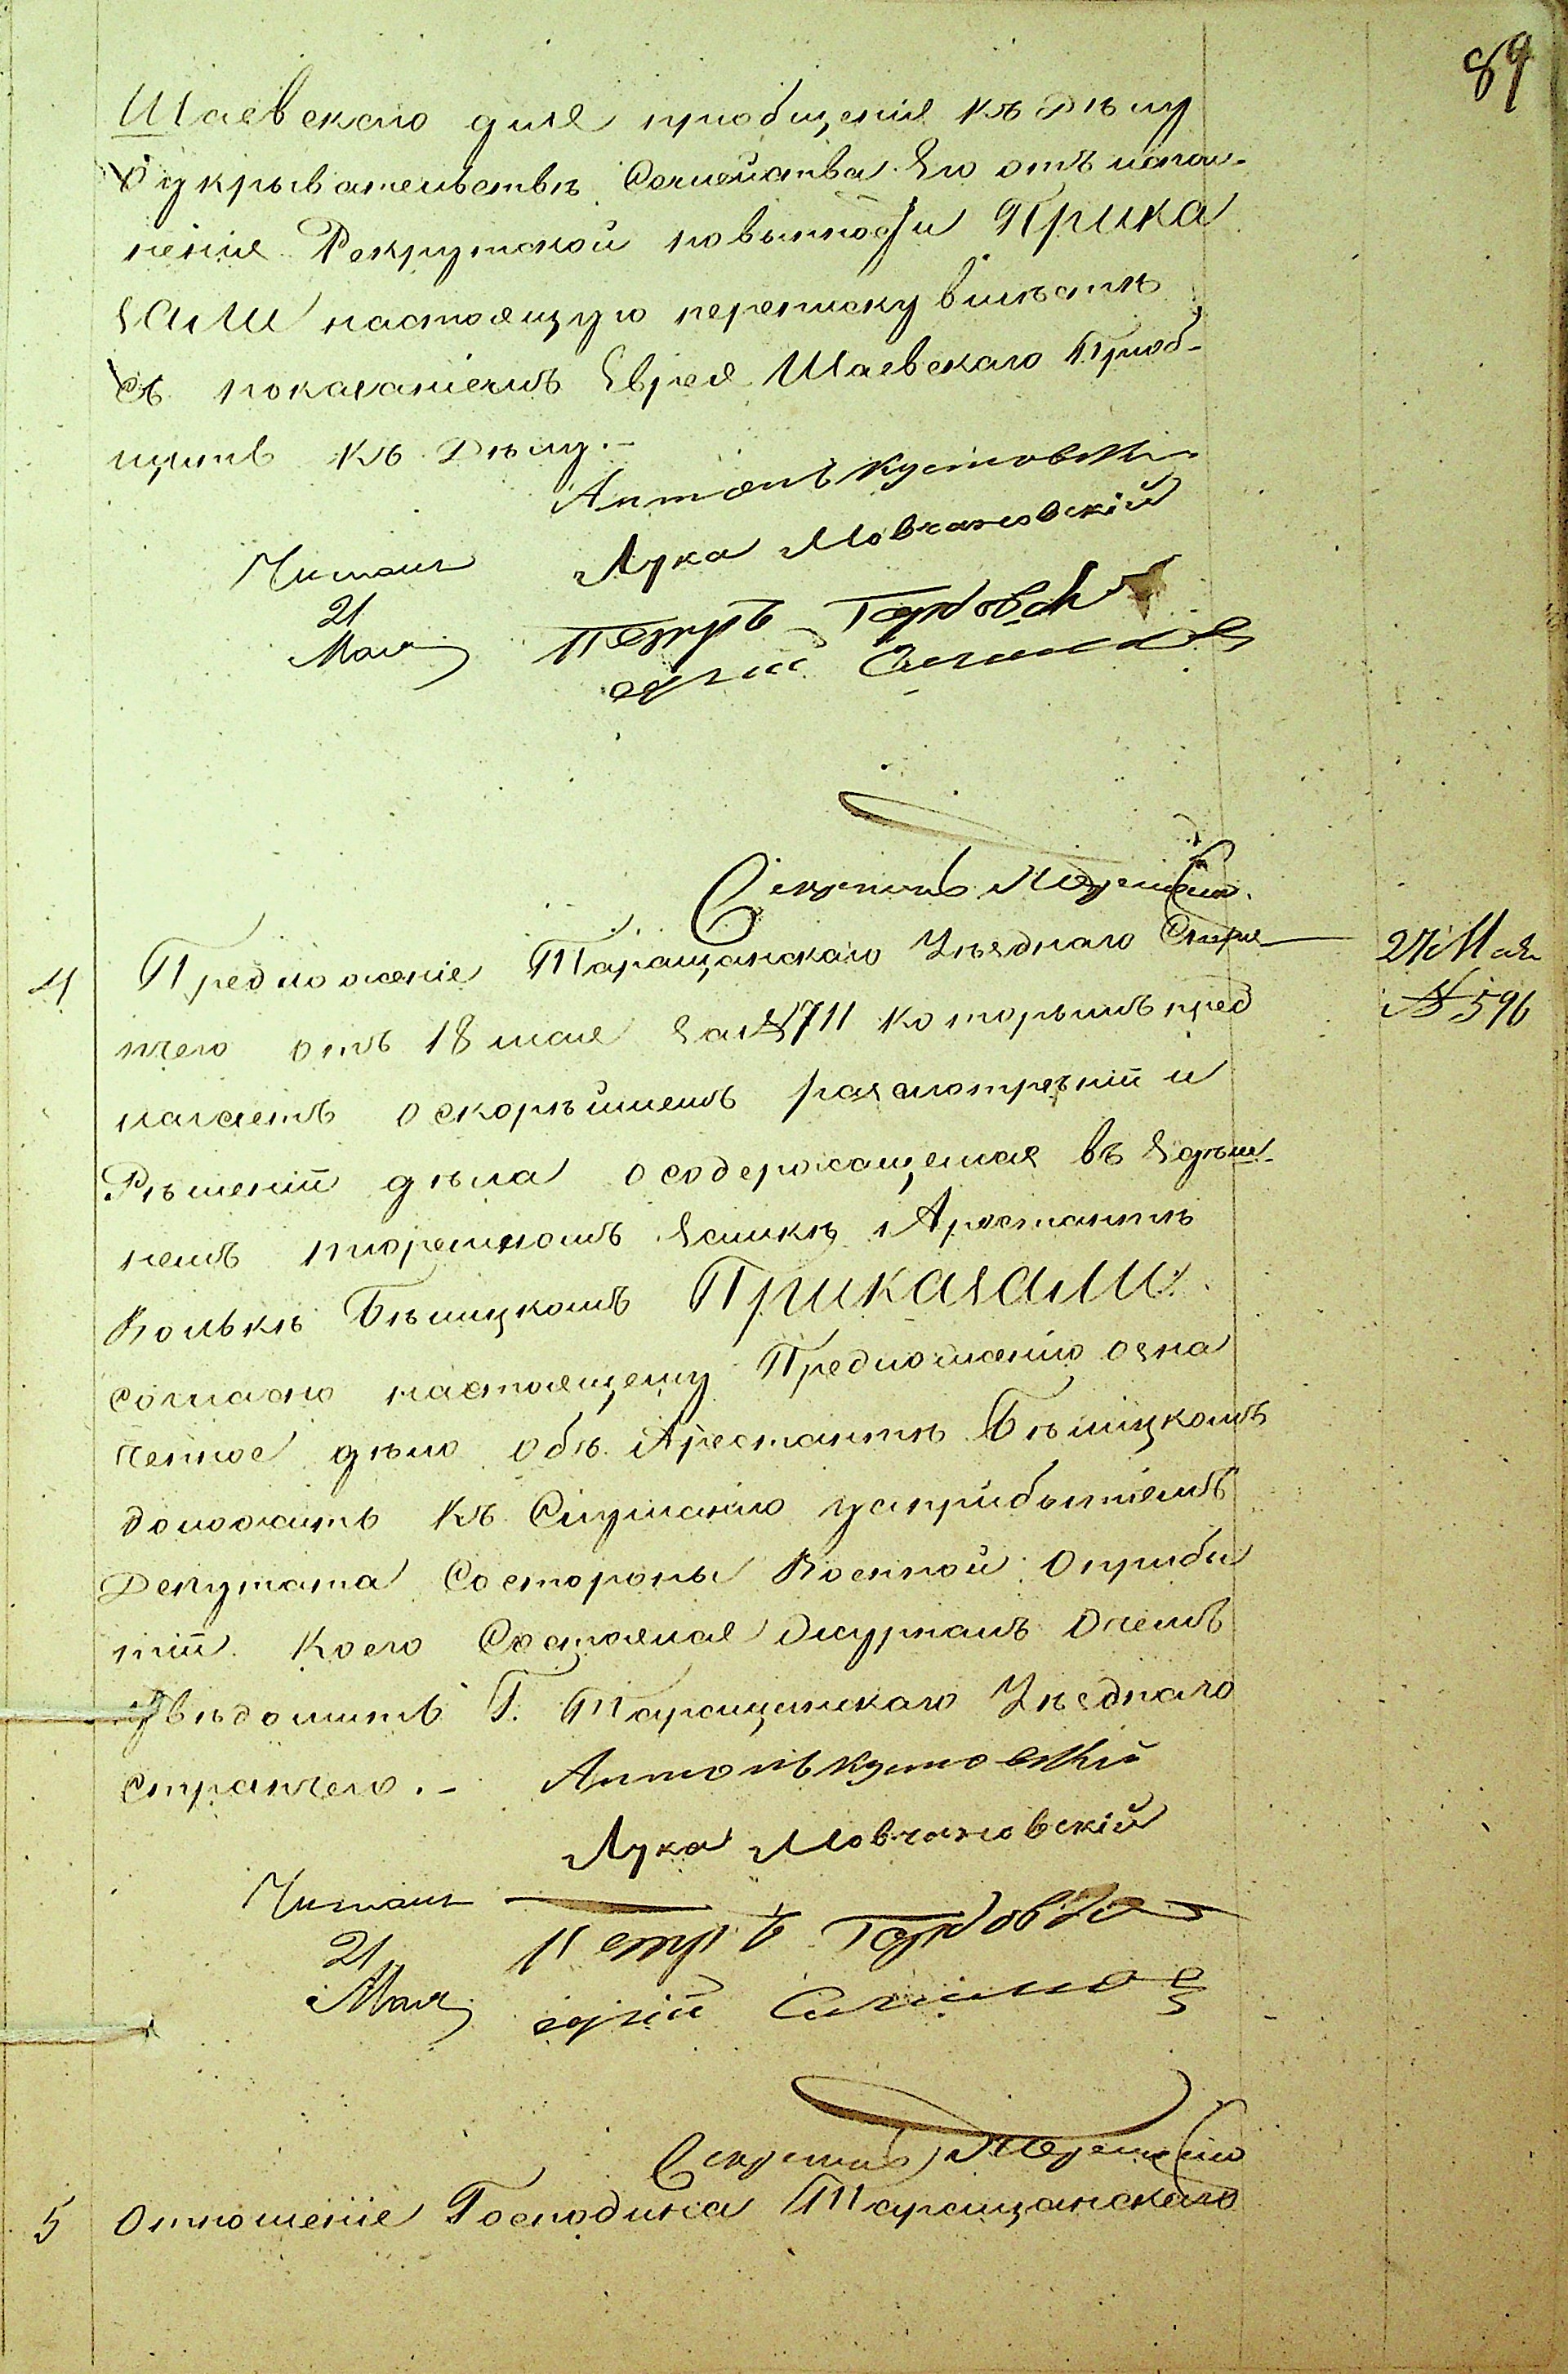 89
Шаевскаго для пріобщенія къ Дѣлу
о укрывательствѣ Семейства Его отъ испол-
ненія Рекрутской повинности Прика
зали настоящую переписку вмѣстѣ
съ показаніемъ Еврея Шаевскаго Пріоб-
щить къ Дѣлу.-
Антонъ Кутовскій
Лука Мовчановскій
Читалъ
21
Мая
Петръ
Секретарь
4 Предложеніе Таращанскаго Уѣзднаго Стряп
чего отъ 18 мая за № 711 которымъ пред
лагаетъ о скорѣйшемъ разсмотреніи и
Рѣшеніи дѣла о содержащемся въ здѣш-
немъ тюремномъ замкѣ Арестантѣ
Волькѣ Бѣлицкомъ Приказали:
согласно настоящему Предложенію озна
ченное дѣло объ Арестантѣ Бѣлицкомъ
доложить къ Слушанію за прибытіемъ
Депутата Со стороны Военной о прибы
тіи коего Состоялся Журналъ О чемъ
Увѣдомить Г. Таращанскаго Уѣзднаго
стряпчего.-
27 Мая
№ 596
Антонъ Кутовскій
Лука Мовчановскій
Читалъ
21
Мая
Петръ
Секретарь
5 Отношеніе Господина Таращанскаго